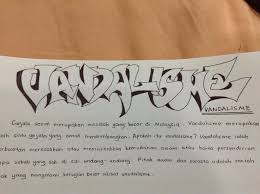 VANDALISME
VANDALISME
Gejala sosial merupakan masalah yang besar di Malaysia. Vandalisme merupakan
satu gejala yang amat membimbangkan. Apakah itu vandalisme? Vandalisme ialah
merosakkan atau memusnahkan kemudahan awam atau harta persendirian
sebab yang sah di sisi undang-undang. Pihak awam dan swasta adalah
yang mengalami kerugian besar akibat vandalisme.